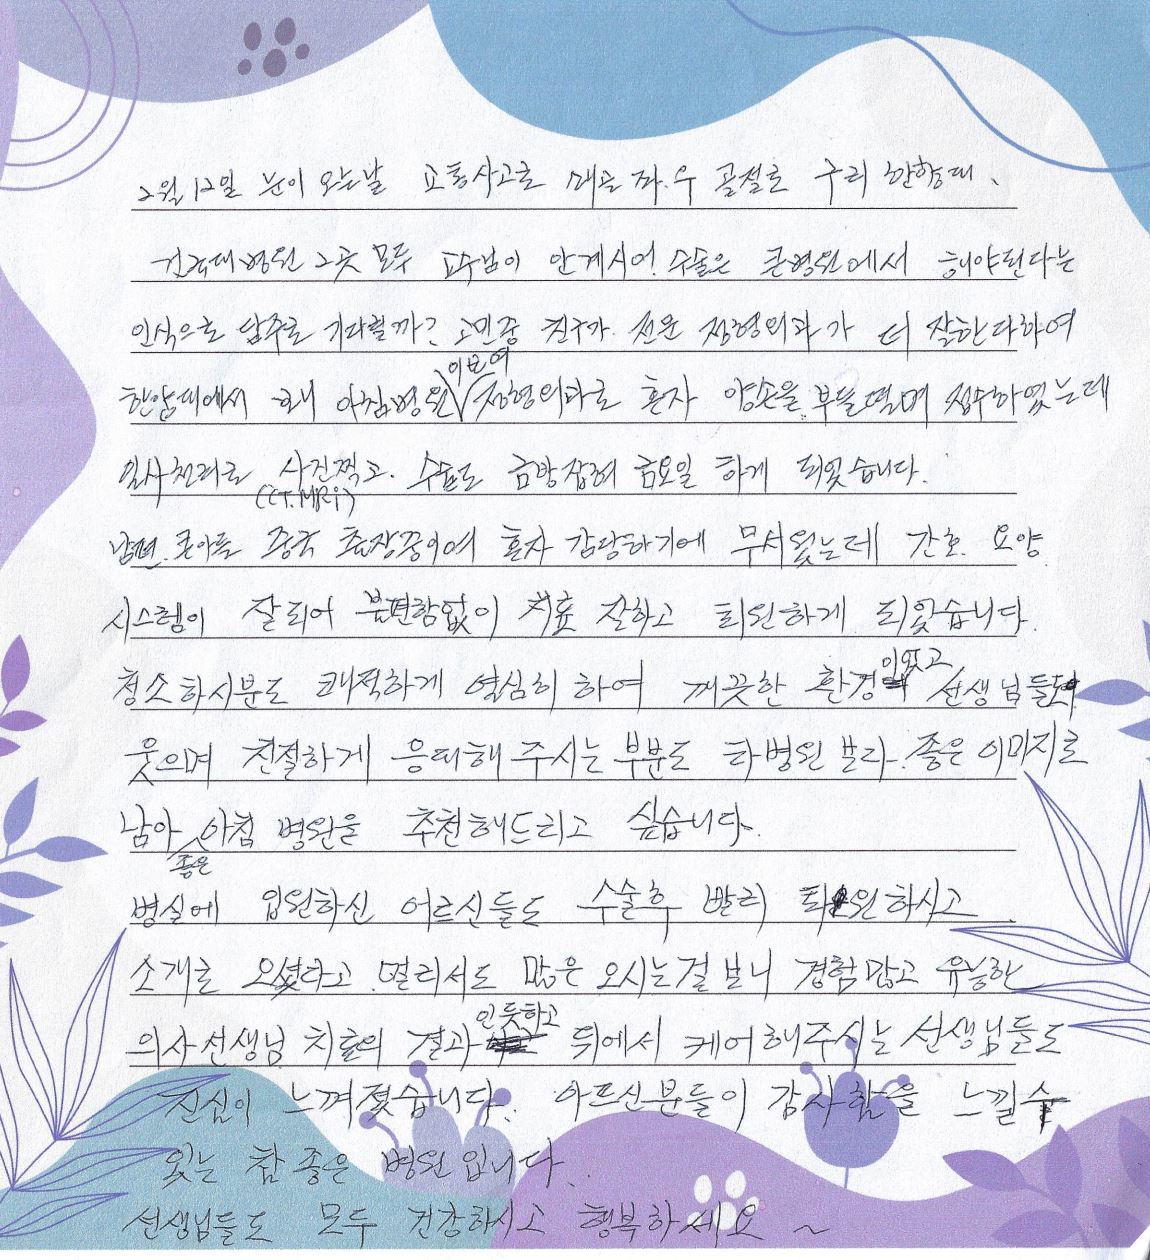 2월 12일 눈이 오는날 교통사고로 좌.우 골절로 구리 한양대、
건국대병원 2곳 모두 교수님이 안계시어. 수술은 큰병원에서 해야된다는
인식으로 담주로 기다릴까? 고민중 친구가. 전문 정형외과가 더 잘한다하여
한양대에서 아침병원 이보여 정형외과로 혼자 양손을 부들떨며 접수하였는데
일사천리로 사진찍고. 수술도 금방잡혀 금요일 하게 되었습니다.
(CT.MRi)
남편. 큰아들 중국 출장중이여 혼자 감당하기에 무서웠는데 간호. 요양
시스템이 잘되어 불편함없이 치료 잘하고 퇴원하게 되었습니다.
청소하시분도 쾌적하게 열심히 하여 깨끗한 환경이었고 선생님들도
웃으며 친절하게 응대해 주시는 부분도 타병원 보다. 좋은 이미지로
남아 아침 병원을 추천해드리고 싶습니다.
좋은
병실에 입원하신 어르신들도 수술후 빨리 퇴원하시고
소개로 오셨다고 멀리서도 많은 오시는걸 보니 경험많고 유능한
의사선생님 치료의 결과인듯하고 뒤에서 케어해주시는 선생님들도
진심이 느껴졌습니다. 아르신분들이 감사함을 느낄수
있는 참 좋은 병원입니다..
선생님들도 모두 건강하시고 행복하세요 ~